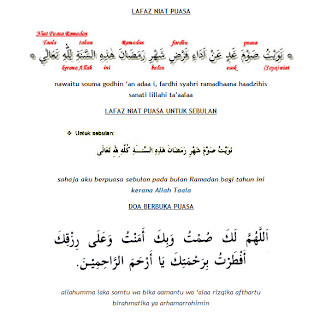 LAFAZ NIAT PUASA
Niat Puasa Ramadan
Taala tahun Ramadan fardhu puasa
نَوَيْتُ صَوْمَ غَدٍ عَنْ اَدَاءِ فَرْضِ شَهْرِ رَمَضَانَ هٰذِهِ السَّنَةِ لِلّٰهِ تَعَالٰى
kerana Allah ini bulan esok (Saya) niat
nawaitu souma godhin 'an adaa i, fardhi syahri ramadhaana haadzihis
sanati lillahi ta'aalaa
LAFAZ NIAT PUASA UNTUK SEBULAN
Untuk sebulan:
نَوَيْتُ صَوْمَ شَهْرِ رَمَضَانَ هٰذِهِ السَّنَـــةِ كُلِّهِ لِلّٰهِ تَعَالٰى
sahaja aku berpuasa sebulan pada bulan Ramadan bagi tahun ini
kerana Allah Taala
DOA BERBUKA PUASA
اَللّٰهُمَّ لَكَ صُمْتُ وَبِكَ اٰمَنْتُ وَعَلَى رِزْقِكَ
اَفْطَرْتُ بِرَحْمَتِكَ يَا اَرْحَمَ الرَّاحِمِيْنَ.
allahumma laka somtu wa bika aamantu wa 'alaa rizqika afthartu
birahmatika ya arhamarrohimin